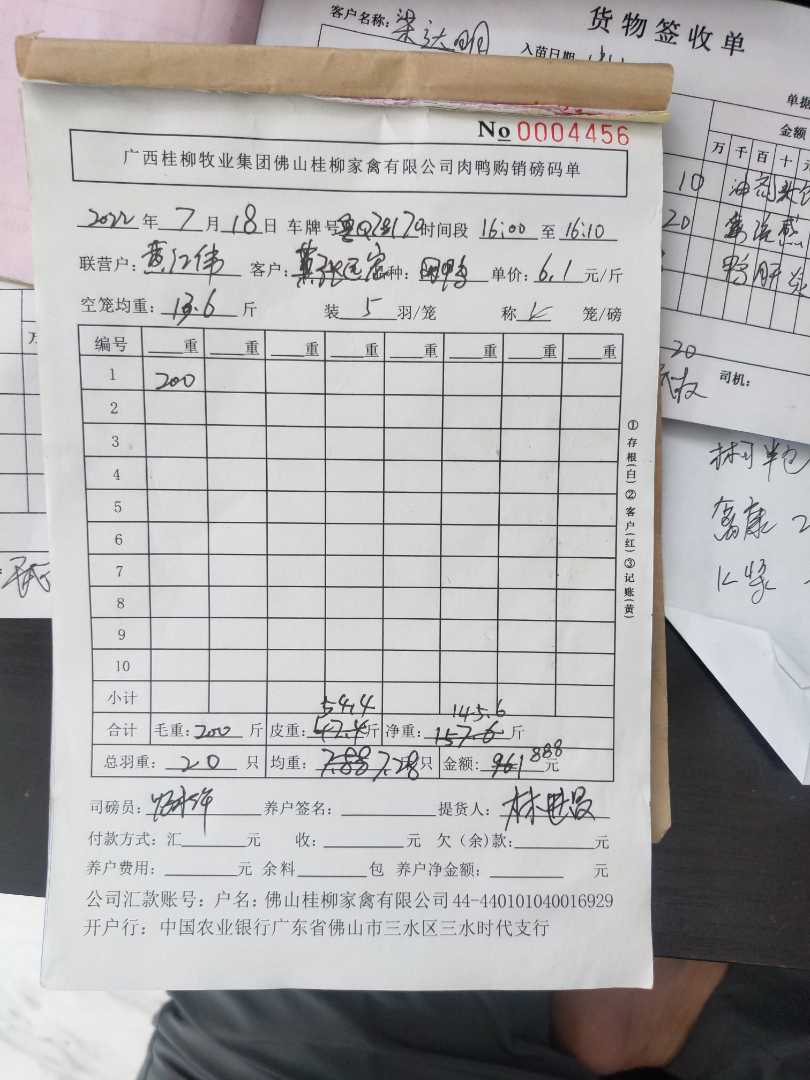 客户名称:梁达明
货物签收单
入苗日期
单据
金额
万 千 百 十 元
10
20
鸭肝炎
20
司机:
No 0004456
广西桂柳牧业集团佛山桂柳家禽有限公司肉鸭购销磅码单
2022年7月18日 车牌号 时间段 16:00 至 16:10
联营户:黄红伟 客户: 品种: 单价:6.1 元/斤
空笼均重:13.6 斤 装 5 羽/笼 称 笼/磅
编号 重 重 重 重 重 重 重 重
1 200
2
3
4
5
6
7
8
9
10
小计 54.4 145.6
合计 毛重:200 斤 皮重: 斤 净重:157.6 斤
总羽重:20 只 均重:7.88 7.28 只 金额:961 888 元
司磅员: 养户签名: 提货人:
付款方式:汇 元 收: 元 欠(余)款: 元
养户费用: 元 余料 包 养户净金额: 元
公司汇款账号:户名:佛山桂柳家禽有限公司 44-440101040016929
开户行:中国农业银行广东省佛山市三水区三水时代支行
①存根(白)②客户(红)③记账(黄)